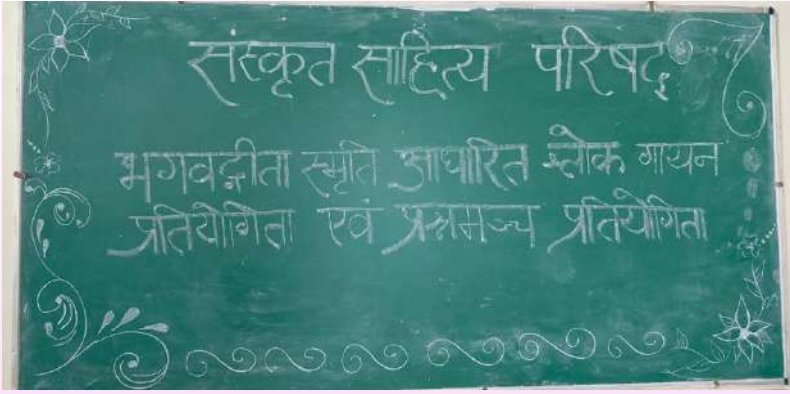 संस्कृत साहित्य परिषद्
भगवद्गीता स्मृति आधारित श्लोक गायन
प्रतियोगिता एवं प्रश्नमञ्च प्रतियोगिता